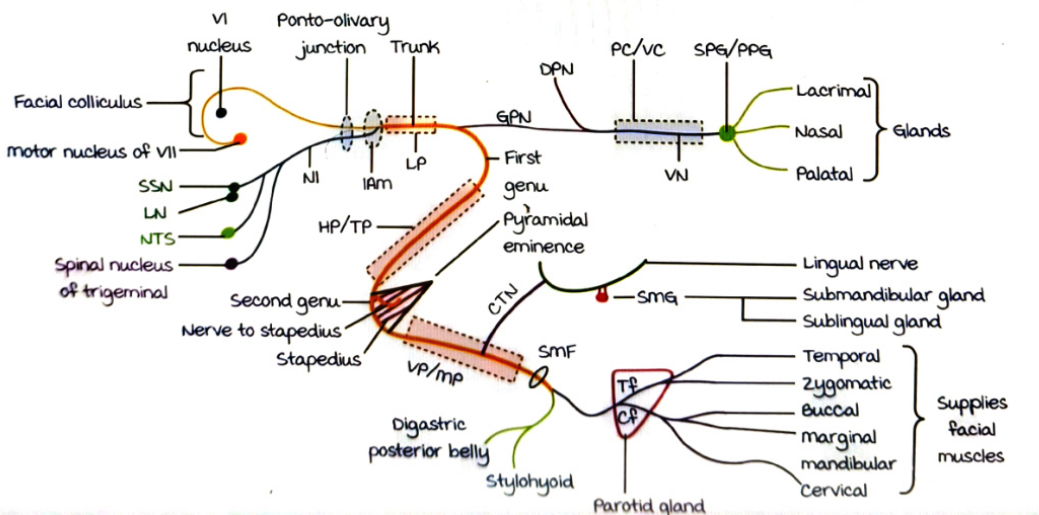 VI
nucleus
Ponto-olivary
junction
Trunk
PC/VC
SPG/PPG
DPN
GPN
Facial colliculus
motor nucleus of VII
SSN
LN
NTS
Spinal nucleus
of trigeminal
NI
IAm
LP
First
genu
VN
Lacrimal
Nasal
Palatal
Glands
HP/TP
Pyramidal
eminence
Second genu
Nerve to stapedius
Stapedius
CTN
SMG
Lingual nerve
Submandibular gland
Sublingual gland
VP/MP
SMF
Tf
Cf
Temporal
Zygomatic
Buccal
marginal
mandibular
Cervical
Supplies
facial
muscles
Digastric
posterior belly
Stylohyoid
Parotid gland